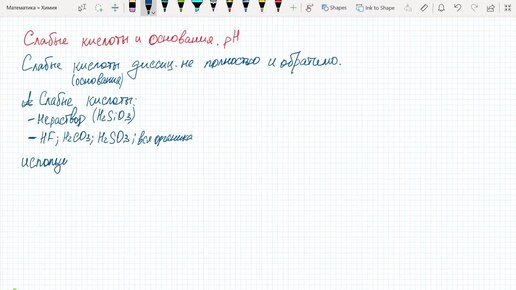 Математика » Химия
Shapes
Ink to Shape
Слабые кислоты и основания. pH
Слабые кислоты диссиц. не полностью и обратимо.
(основания)
Слабые кислоты:
- Нераствор (H₂SiO₃)
- HF; H₂CO3; H₂SO3; вся органика